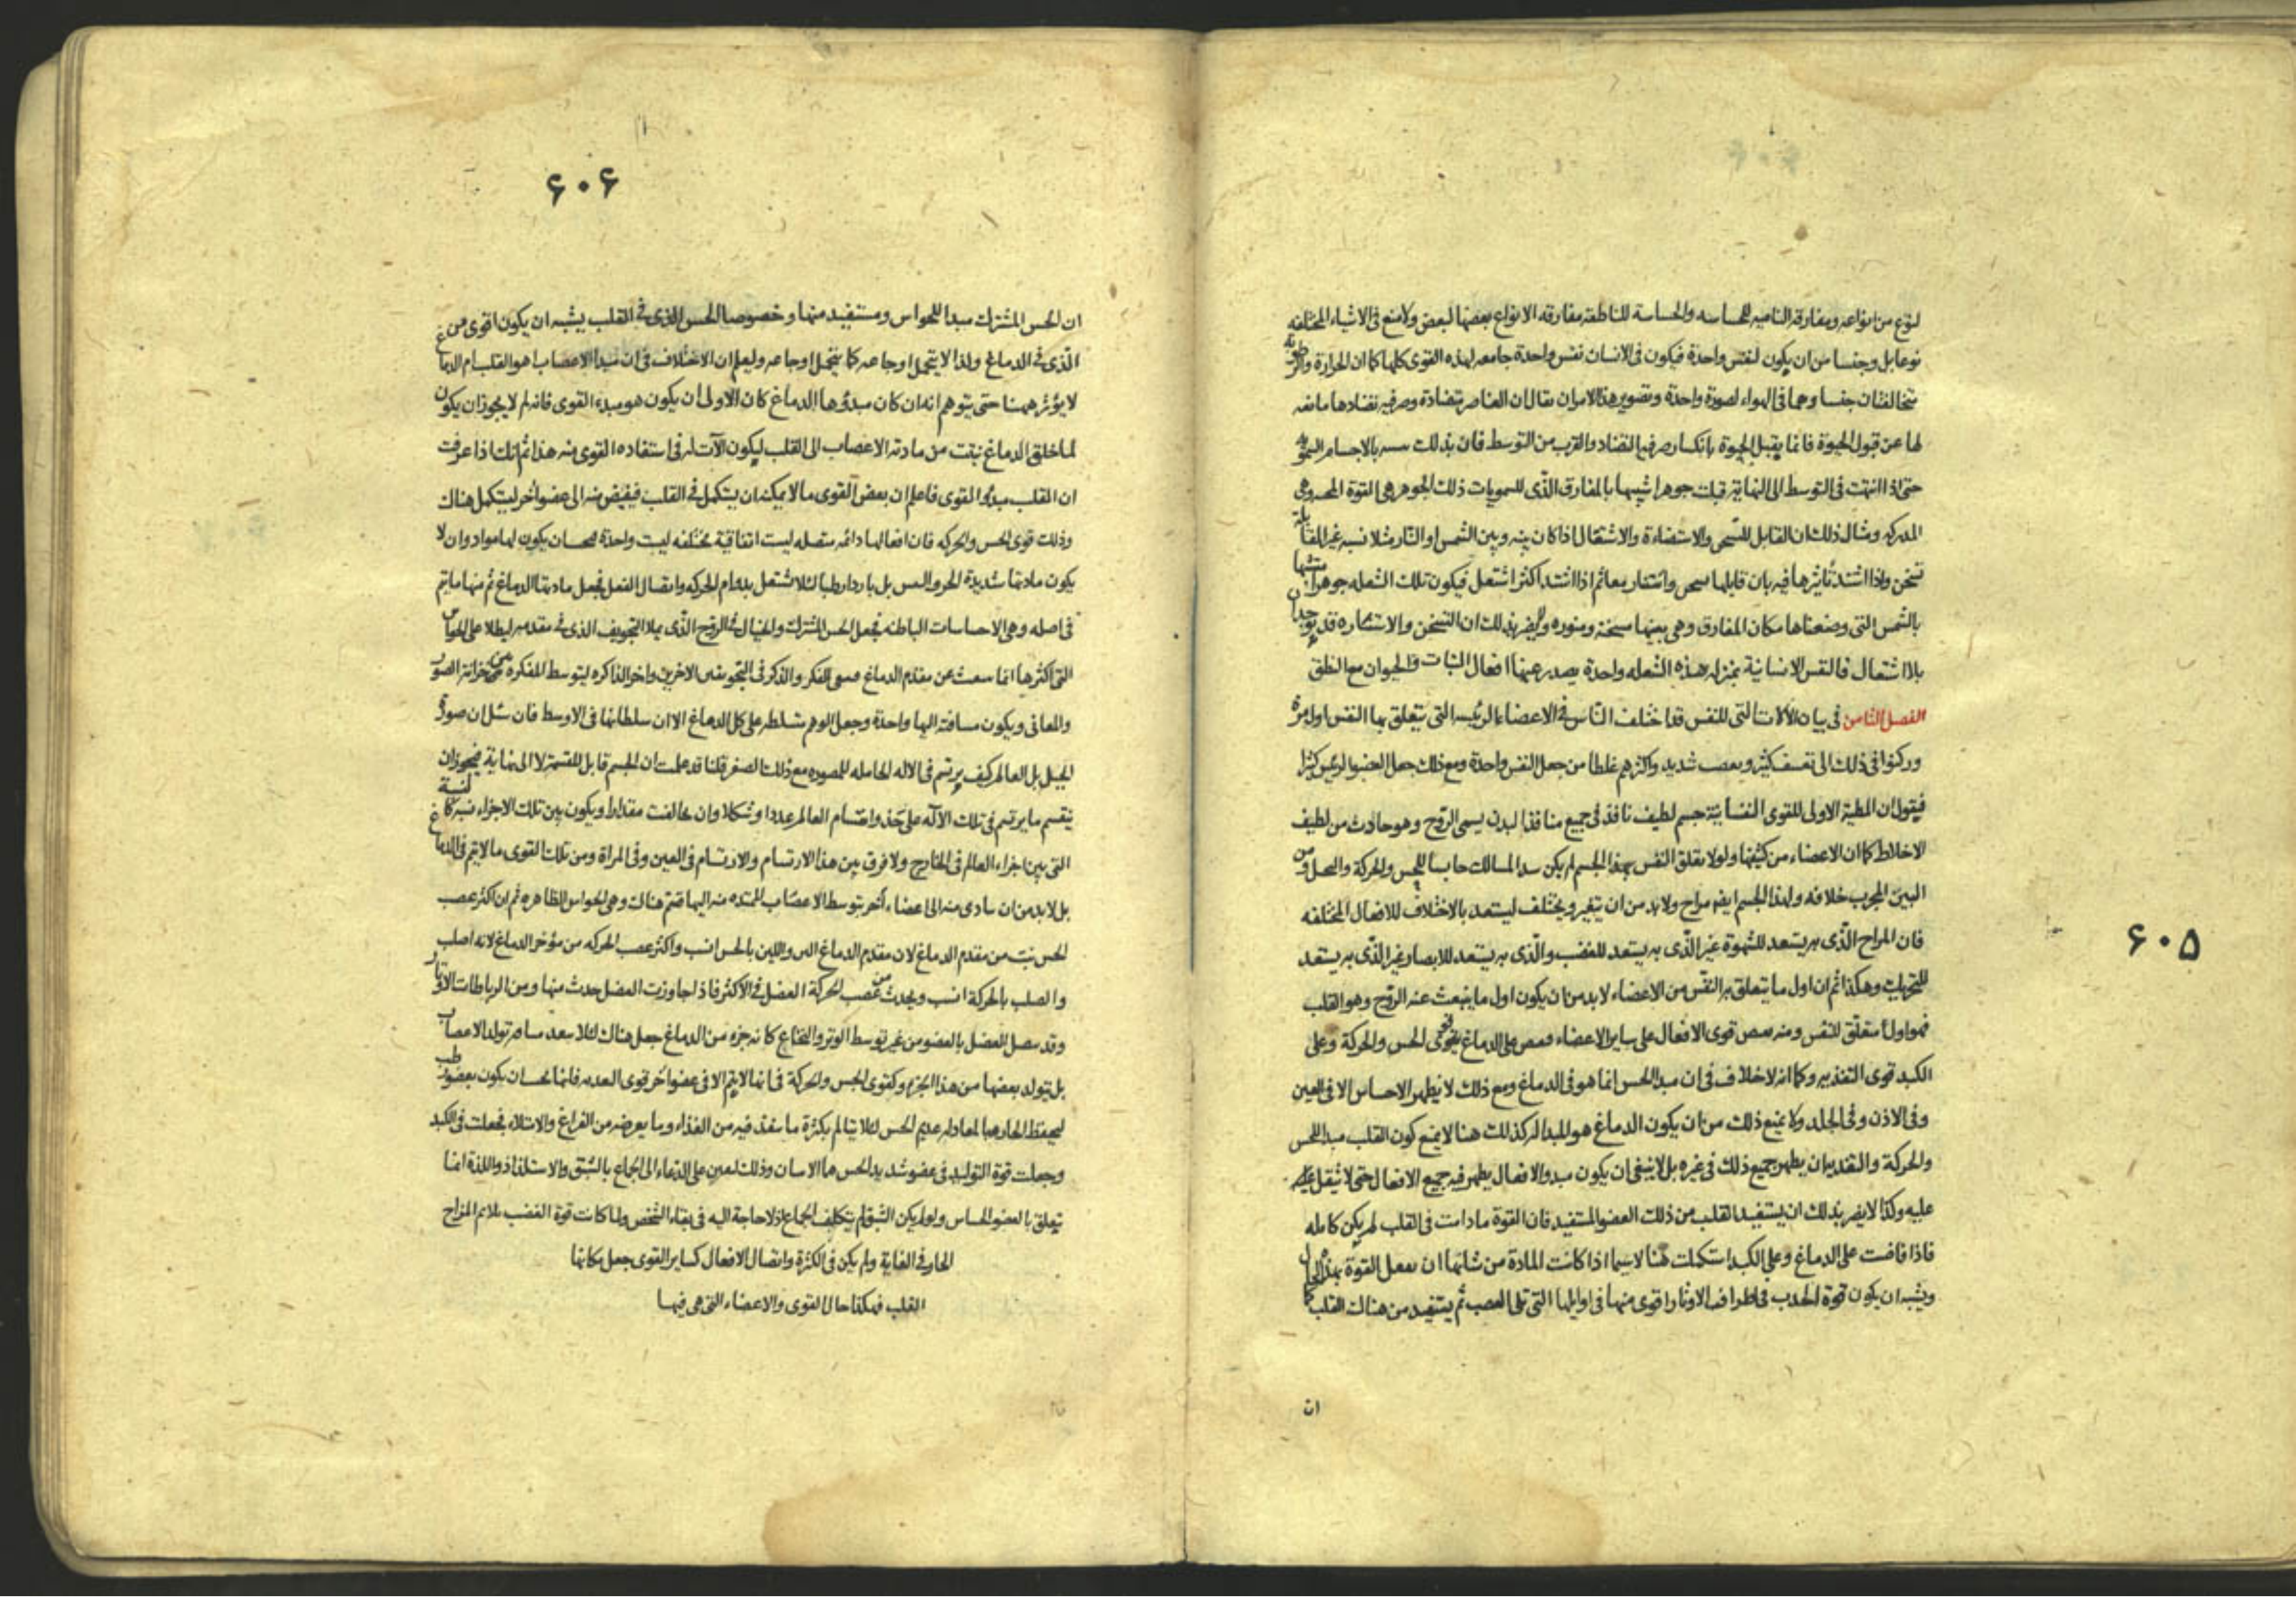 ۶۰۵
لنوع من انواعه ومفارقه الناميه للحساسه والحساسة للناطقه مفارقه الانواع بعضها لبعض ولامنع فى الاشياء المختلفه
نوعا بل وجنسا من ان يكون لنفس واحدة فيكون فى الانسان نفس واحدة جامعه لهذه القوى كلها كما ان الحرارة والرطوبة
تتخالفان جنسا وهما فى الهواء لصورة واحدة وتصوير هذا الامر ان يقال ان العناصر متضادة وصرفيه تضادها مانعه
لها عن قبول الحيوة فانما يقبل الحيوة بانكسار صرفية التضاد والقرب من التوسط فان بذلك بالاجسام السموية
حتى اذا انتهت فى التوسط الى النهاية قبلت جوهرا شبيها بالمفارق الذى للسمويات ذلك الجوهر هى القوة المحركة وهى
المدركه ومثال ذلك ان القابل للتسخن والاستضاءة والاشتعال اذا كان بينه وبين الشمس او النار مثلا نسبه غير المقابلة
تسخن واذا اشتد تأثيرها فيه بان قابلها سخن واستنار معا ثم اذا اشتد اكثر اشتعل فيكون تلك الشعله جوهرا
بالشمس التى وضعناها مكان المفارق وهى بعينها مسخنة ومنوره وليضر بذلك ان التسخن والاستناره قد يوجدان
بلا اشتعال فالنفس الانسانية بمنزله هذه الشعله واحدة يصدر عنها افعال النبات والحيوان مع النطق
الفصل الثامن فى بيان الآلات التى للنفس قد اختلف الناس فى الاعضاء الرئيسه التى يتعلق بها النفس اول مرة
وركنوا فى ذلك الى تعسف كثير وتعصب شديد واكثرهم غلطا من جعل النفس واحدة ومع ذلك جعل العضو الرئيس كثيرا
فيقول ان المطية الاولى للقوى النفسانية جسم لطيف نافذ فى جميع منافذ البدن يسمى الروح وهو حادث من لطيف
الاخلاط كما ان الاعضاء من كثيفها ولولا تعلق النفس بهذا الجسم لم يكن سد المسالك حابسا للحس والحركة والتخيل ومن
البين المجرب خلافه ولهذا الجسم ايضا مزاج ولابد من ان يتغير ويختلف ليستعد بالاختلاف للافعال المختلفه
فان المزاج الذى به يستعد للشهوة غير الذى به يستعد للغضب والذى به يستعد للابصار غير الذى به يستعد
للتحريك وهكذا ثم ان اول ما يتعلق به النفس من الاعضاء لابد من ان يكون اول ما ينبعث عنه الروح وهو القلب
فهو اول متعلق للنفس ومنه يفيض قوى الافعال على ساير الاعضاء فيفيض على الدماغ قوى الحس والحركة وعلى
الكبد قوى التغذيه وكما انه لا خلاف فى ان مبدا الحس انما هو فى الدماغ ومع ذلك لا يظهر الاحساس الا فى العين
وفى الاذن وفى الجلد ولا يمنع ذلك من ان يكون الدماغ هو المبدا له كذلك هنا لا يمنع كون القلب مبدا للحس
والحركة والتغذيه ان يظهر جميع ذلك فى غيره بل لا ينبغى ان يكون مبدء الافعال يظهر فيه جميع الافعال حتى لا يثقل
عليه وكذا لا يضر بذلك ان يستفيد القلب من ذلك العضو المستفيد فان القوة مادامت فى القلب لم يكن كامله
فاذا فاضت على الدماغ وعلى الكبد استكملت هنا لاسيما اذا كانت المادة من شانها ان يفعل القوة بهذا الحال
ويشبه ان يكون قوة الجذب فى اطراف الاوتار اقوى منها فى اوايلها التى تلى العصب ثم يستفيد من هناك القلب كما
ان
۶۰۶
ان الحس المشترك مبدا للحواس ومستفيد منها وخصوصا الحس الذى فى القلب يشبه ان يكون اقوى من
الذى فى الدماغ ولذا لا يتحمل اوجاعه كما يتحمل اوجاعه وليعلم ان الاختلاف فى ان مبدا الاعصاب اهو القلب ام الدماغ
لا يؤثر ههنا حتى يتوهم انه ان كان مبدؤها الدماغ كان الاولى ان يكون هو مبدء القوى فانه لم لا يجوز ان يكون
لما خلق الدماغ نبتت من مادته الاعصاب الى القلب ليكون الآت له فى استفاده القوى منه هذا ثم انك اذا عرفت
ان القلب مبدؤ القوى فاعلم ان بعض القوى ما لا يمكنه ان يتكمل فى القلب فيفيض منه الى عضو آخر ليتكمل هناك
وذلك قوى الحس والحركه فان افعالها دائمه متصله ليست اتفاقية مختلفه ليست واحدة فيجب ان يكون لها مواد وان لا
يكون مادتها شديدة الحر واليبس بل باردا رطبا لئلا تشتعل بدوام الحركه واتصال الفعل فجعل مادتها الدماغ ثم منها ما يتم
فى اصله وهى الاحساسات الباطنه فجعل الحس المشترك والخيال فى الروح الذى يملا التجويف الذى فى مقدمه ليطلا على الحواس
التى اكثرها انما ينبعث عن مقدم الدماغ وبقى الفكر والذكر فى التجويفين الاخرين واخر الذاكره ليتوسط المفكره بين خزانة الصور
والمعانى ويكون مسافته اليها واحدة وجعل الوهم متسلطه على كل الدماغ الا ان سلطانها فى الاوسط فان سئل ان صورة
الجبل بل العالم كيف يرتسم فى الاله الحامله للمصوره مع ذلك الصغر قلنا قد علمت ان الجسم قابل للقسمة لا الى نهاية فيجوز ان
ينقسم ما يرتسم فى تلك الآله على حذو اقسام العالم عددا وشكلا وان خالفت مقدارا ويكون بين تلك الاجزاء نسبه كالنسبة
التى بين اجزاء العالم فى الخارج ولا فرق بين هذا الارتسام والارتسام فى العين وفى المراة ومن تلك القوى ما لا يتم فى الدماغ
بل لابد من ان يتادى منه الى اعضاء أخر بتوسط الاعصاب الممتده منه اليها فتتم هناك وهى الحواس الظاهره ثم ان اكثر عصب
الحس نبت من مقدم الدماغ لان مقدم الدماغ الين واللين بالحس انسب واكثر عصب الحركه من مؤخر الدماغ لانه اصلب
والصلب بالحركة انسب ويحدث من عصب الحركة العضل فى الاكثر فاذا جاوزت العضل حدث منها ومن الرباطات الاوتار
وقد يتصل العضل بالعضو من غير توسط الوتر والنخاع كانه جزء من الدماغ جعل هناك لئلا يبعد تولد الاعصاب
بل يتولد بعضها من هذا الجزء وكقوى الحس والحركة فى انها لا يتم الا فى عضو آخر قوى التغذيه فانها يجب ان يكون بعضو رطب
ليحفظ الحار عديم الحس لئلا يتالم بكثرة ما ينفذ فيه من الغذاء وما يعرضه من الفراغ والامتلاء فجعلت فى الكبد
وجعلت قوة التوليد فى عضو شديد الحس وذلك ليعين على الدعاء الى الجماع بالشبق والاستلذاذ واللذة انما
يتعلق بالعضو الحساس ولو لم يكن الشبق لم يتكلف الجماع اذ لا حاجة اليه فى بقاء الشخص ولما كانت قوة الغضب يلائم المزاج
الحار فى الغاية ولم يكن فى الكثرة واتصال الافعال كساير القوى جعل مكانها
القلب فهكذا حال القوى والاعضاء التى هى فيها